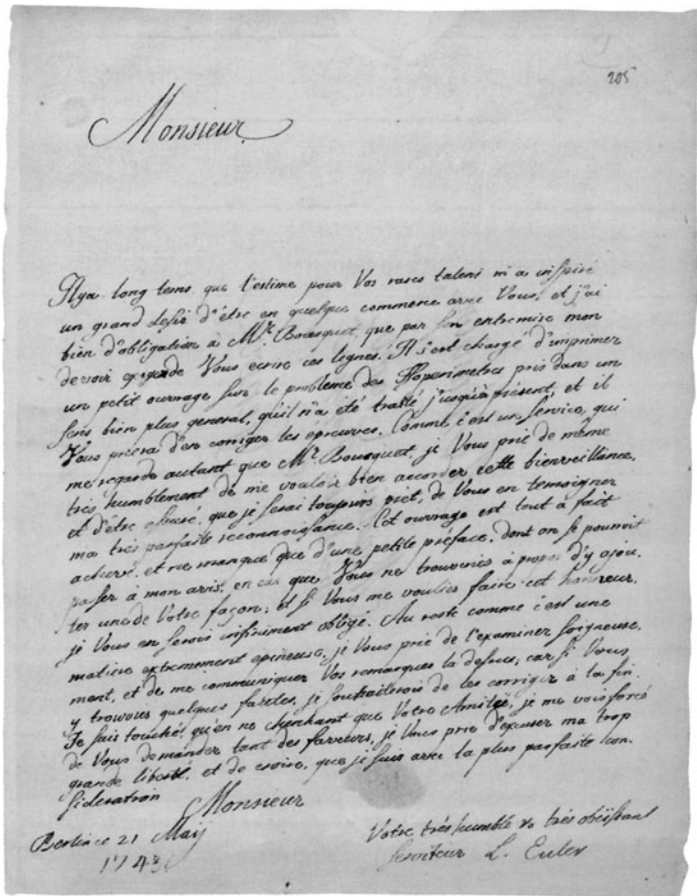 205
Monsieur
Il ya long tems que l'estime pour Vos rares talens m'a inspiré
un grand desir d'être en quelque commerce avec Vous, et j'ai
bien d'obligation à Mr. Bousquet, que par son entremise mon
devoir exige de Vous ecrire ces lignes. Il s'est chargé d'imprimer
un petit ouvrage sur le probleme des Isoperimetres pris dans un
sens bien plus general, qu'il n'a été traité jusqu'à présent, et il
Vous priera d'en corriger les épreuves. Comme c'est un service, qui
me regarde autant que Mr. Bousquet, je Vous prie de même
très humblement de me vouloir bien accorder cette bienveillance,
et d'être assuré, que je serai toujours pret, de Vous en temoigner
ma très parfaite reconnoissance. Cet ouvrage est tout à fait
achevé, et ne manque que d'une petite preface, dont on se pourroit
passer à mon avis, en cas que Vous ne trouveriés à propos d'y ajou-
ter une de Votre façon; et si Vous me vouliés faire cet honneur,
je Vous en serois infiniment obligé. Au reste comme c'est une
matiere extremement epineuse, je Vous prie de l'examiner soigneuse-
ment, et de me communiquer Vos remarques la dessus; car si Vous
y trouvies quelques fautes, je souhaiterois de les corriger à la fin.
Je suis touché, qu'en ne cherchant que Votre Amitié, je me vois forcé
de Vous demander tant des faveurs, je Vous prie d'excuser ma trop
grande liberté, et de croire, que je suis avec la plus parfaite con-
sideration
Monsieur
Berlin ce 21 Maÿ
1743
Votre très humble & très obéïssant
serviteur L. Euler